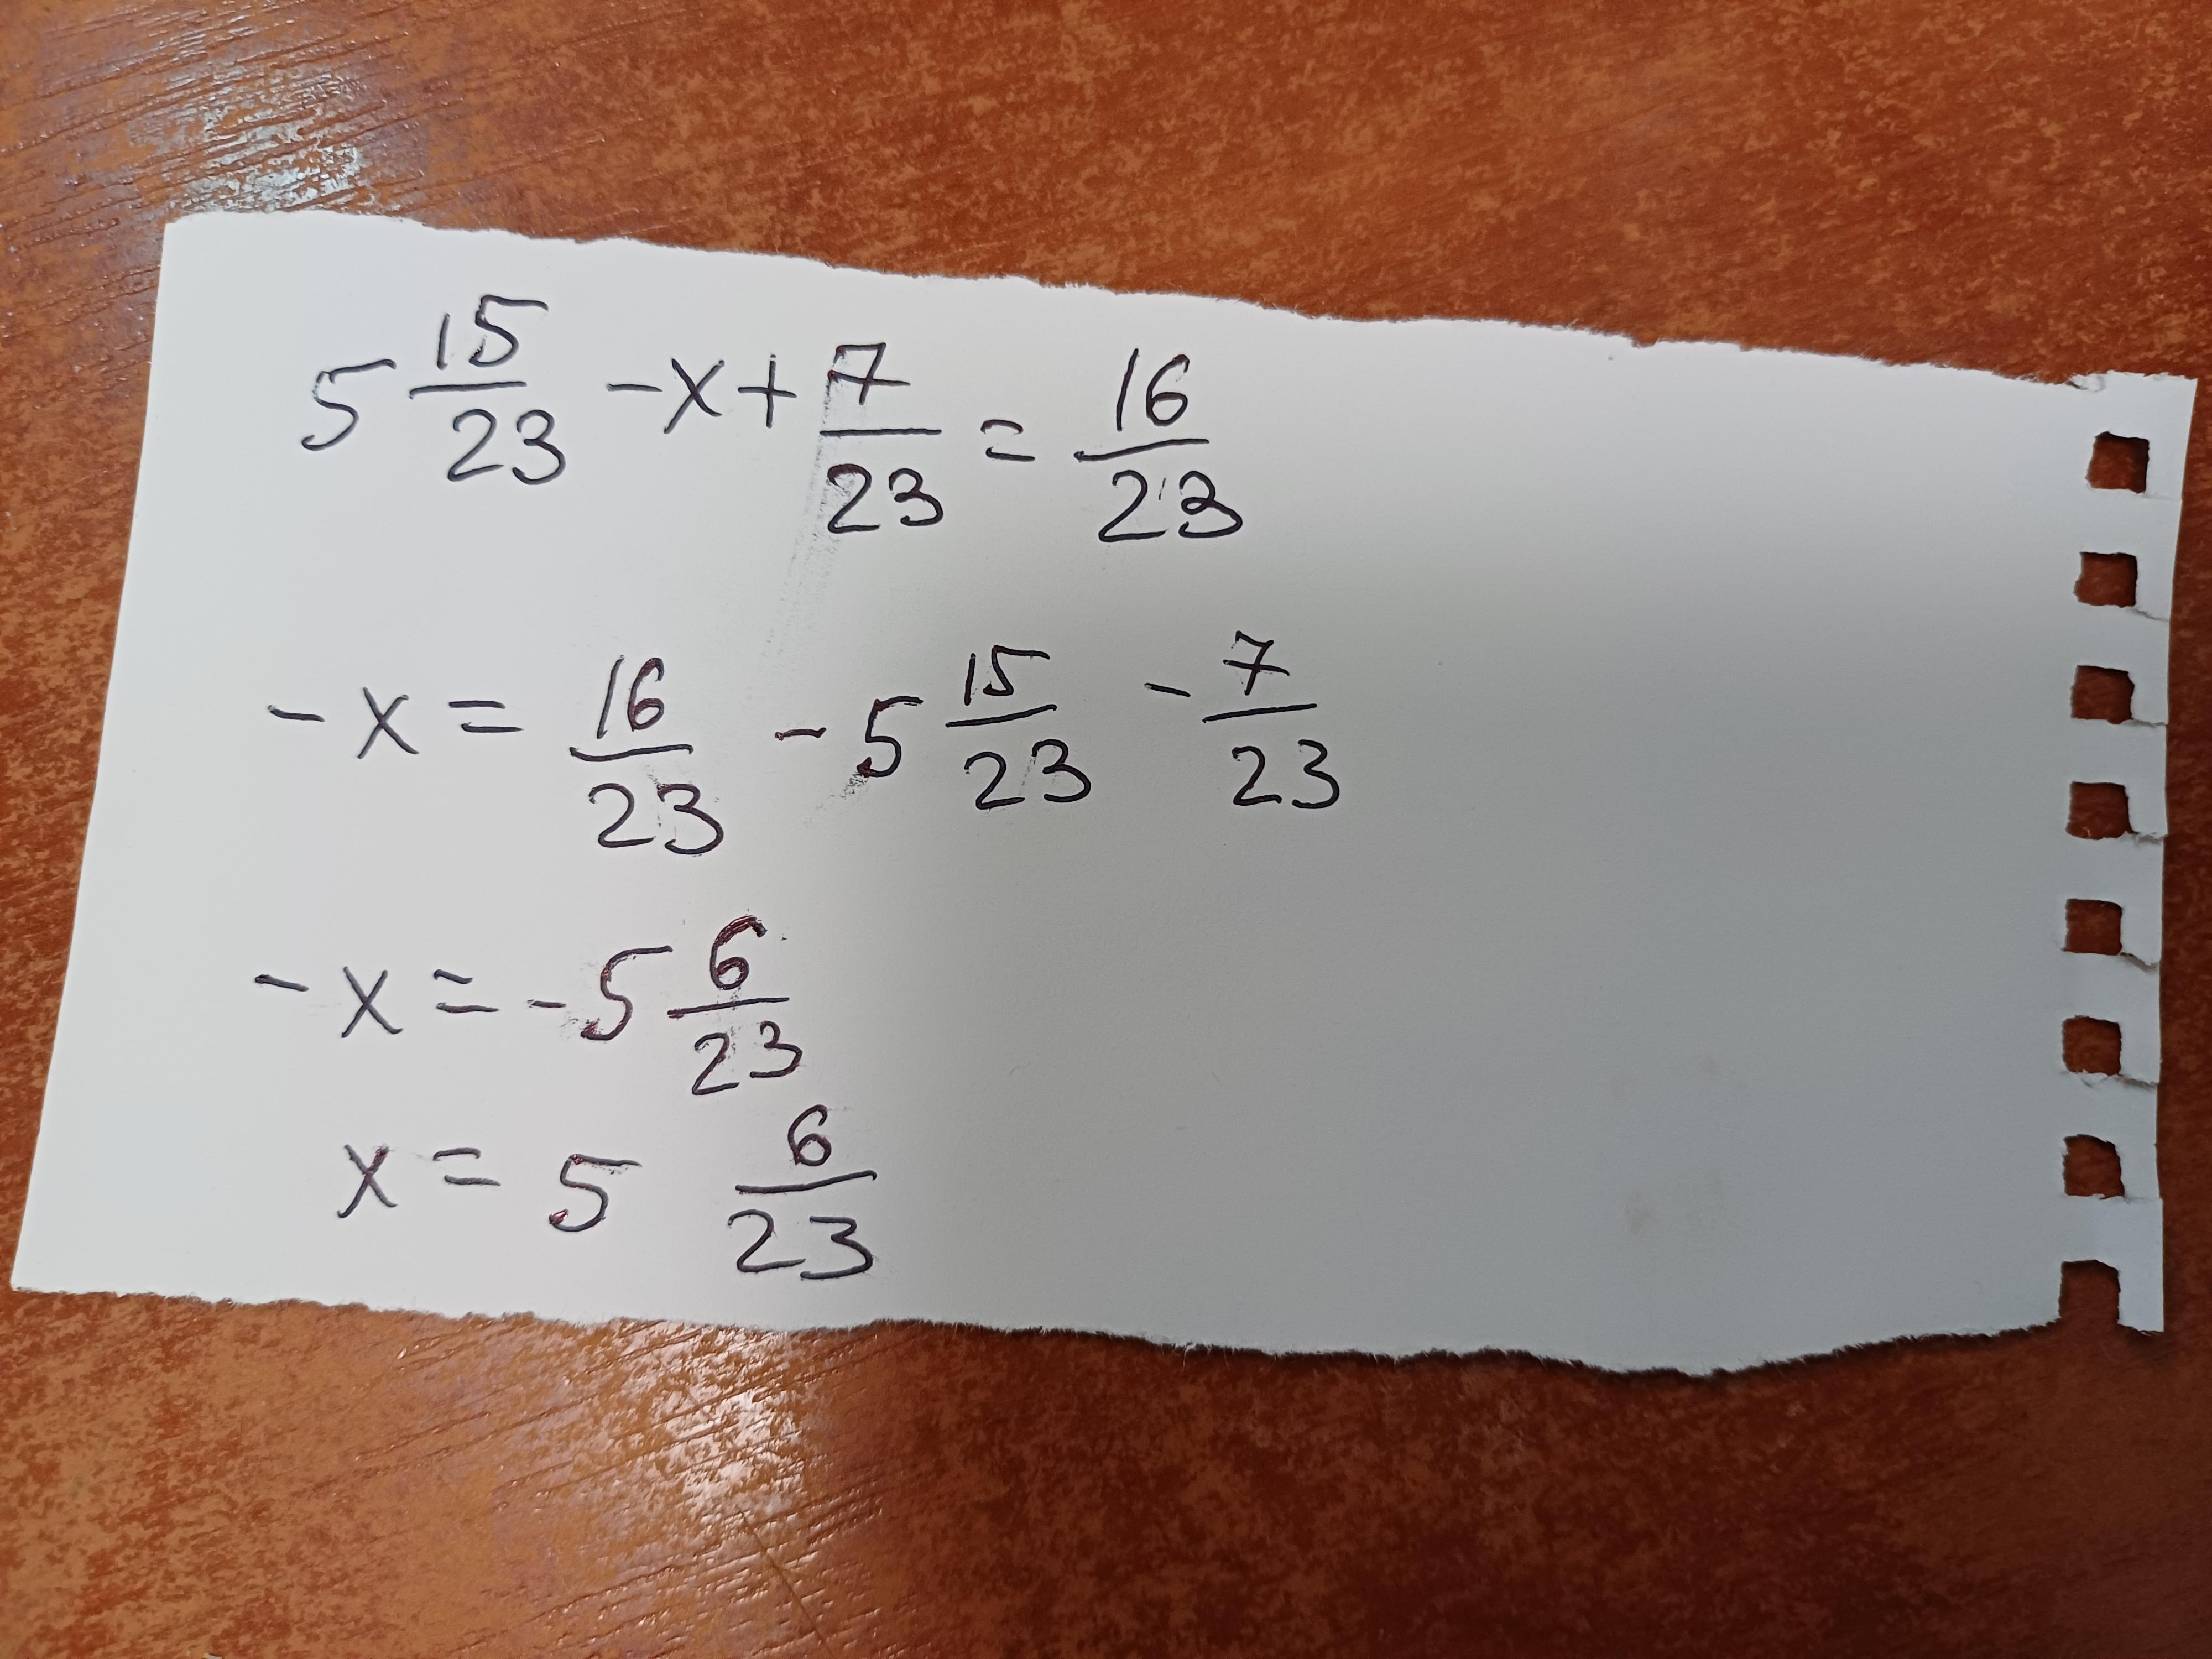 5 15/23 - x + 7/23 = 16/23
- x = 16/23 - 5 15/23 - 7/23
- x = - 5 6/23
x = 5 6/23